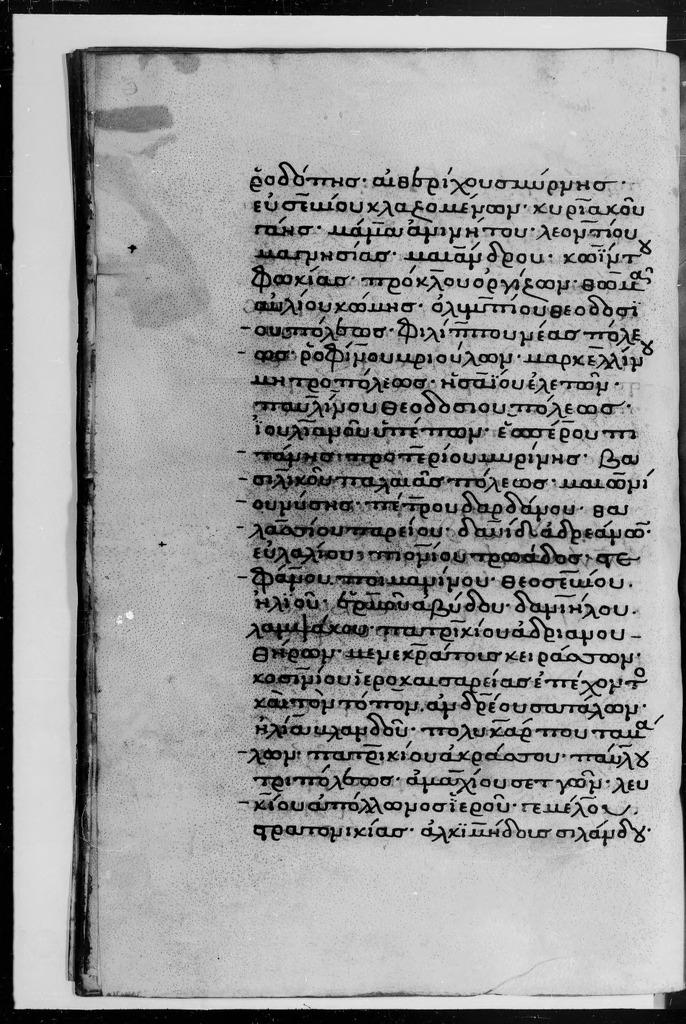 ῥοδόπης· αἰθερίχου σμύρνης·
εὐσταθίου κλαζομενῶν· κυριακοῦ
γάνης· μάμα ἀνινήτου· λεοντίου
μαγνησίας· μαιάνδρου· κωΐντου
φωκίας· πρόκλου ἀργίζων· θωμᾶ
αὐλίου κώμης· ὀλυμπίου θεοδοσι
ουπόλεως· φιλίππου νέας πόλε
ως· ῥοφίνου πριούλων· μαρκελλίνου
μητροπόλεως· ἡσαΐου ἐλετῶν·
παυλίνου θεοδοσιουπόλεως·
ἰουλιανοῦ ὑπέπων· ἑσπέρου πι
τάνης· προτερίου μυρίνης· βα
σιλικοῦ παλαιᾶς πόλεως· μαιωνί
ου νύσης· πέτρου δαρδάνου· θα
λασσίου παρείου· δαυῒδ ἀδρεανῶν·
εὐλαλίου πιονίου τρωάδος· στε
φάνου ποιμανίνου· θεοσεβίου
ἠλίου· ἑρμοῦ ἀβύδου· δανιήλου
λαμψάκου· πατρικίου ἀδριανου
θήρων· μενεκράτους κειράσσων·
κοσινίου ἱεροκαισαρείας ἐπέχοντος
καὶ τὸν τόπον ἀνδρέου σατάλων·
ἠλία βλανδοῦ· πολυκάρπου ταβά
λων· πατρικίου ἀκράσσου· παύλου
τριπόλεως· ἀμαχίου σετγῶν· λευ
κίου ἀπόλλωνος ἱεροῦ· γεμέλου
στρατονικίας· ἀλκιμήδους σιλάνδου·